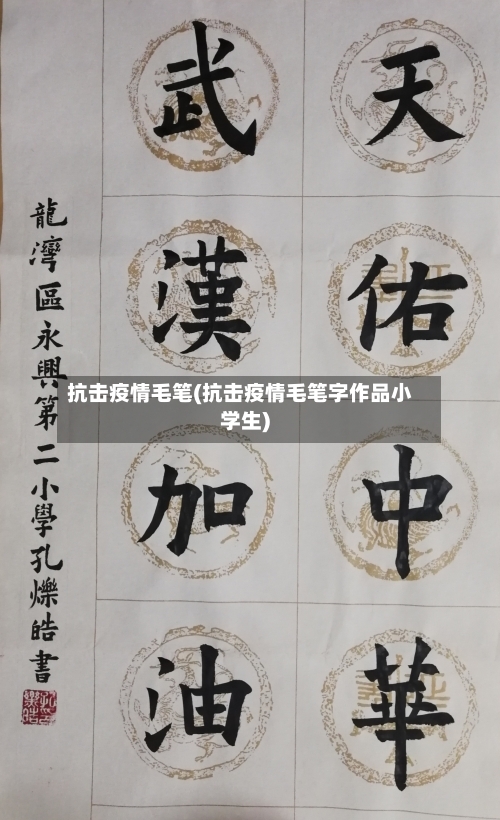 天佑中華
武漢加油
龍灣區永興第二小學孔爍皓書
抗击疫情毛笔(抗击疫情毛笔字作品小
学生)